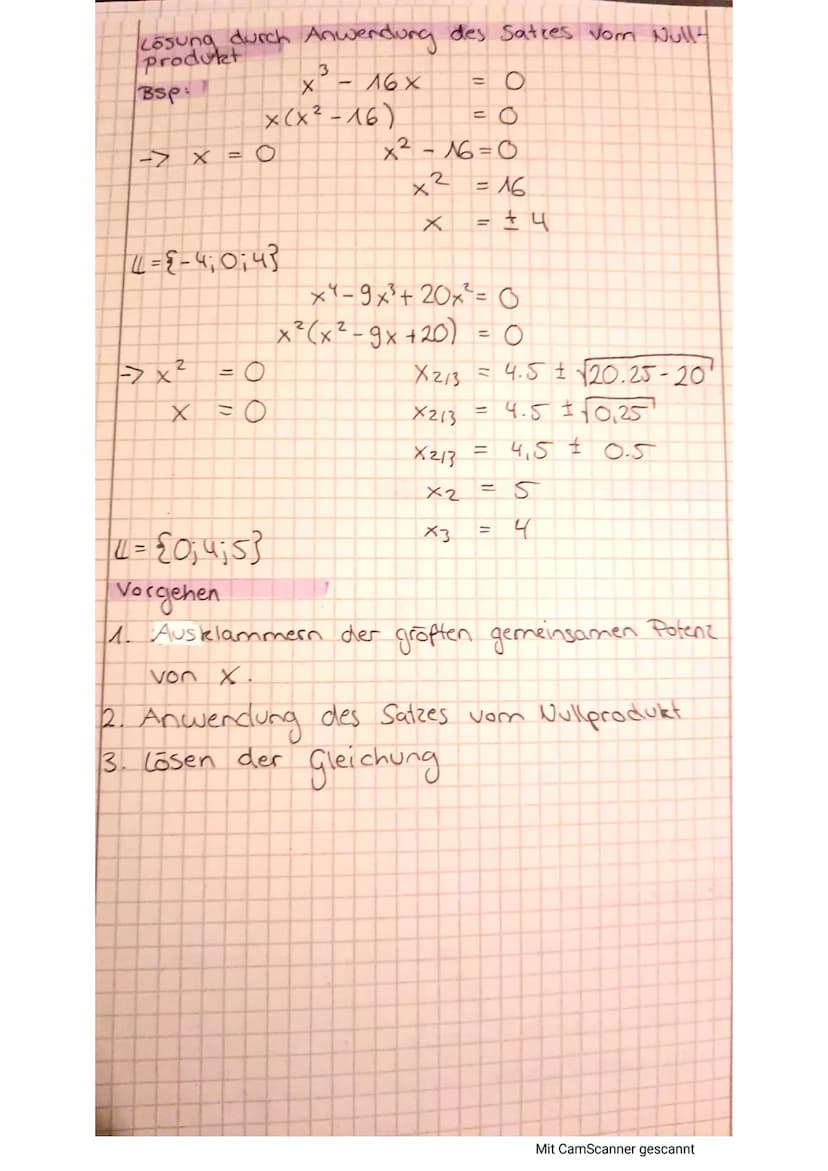 Lösung durch Anwendung des Satzes vom Null-
produkt
Bsp: x³ - 16x = 0
x(x² - 16) = 0
-> x = 0 x² - 16 = 0
x² = 16
x = ± 4
𝕃 = {-4; 0; 4}
x⁴ - 9x³ + 20x² = 0
x²(x² - 9x + 20) = 0
-> x² = 0 x2/3 = 4.5 ± √20.25 - 20
x = 0 x2/3 = 4.5 ± √0,25
x2/3 = 4,5 ± 0.5
x2 = 5
x3 = 4
𝕃 = {0; 4; 5}
Vorgehen
1. Ausklammern der größten gemeinsamen Potenz
von x.
2. Anwendung des Satzes vom Nullprodukt
3. Lösen der Gleichung
Mit CamScanner gescannt